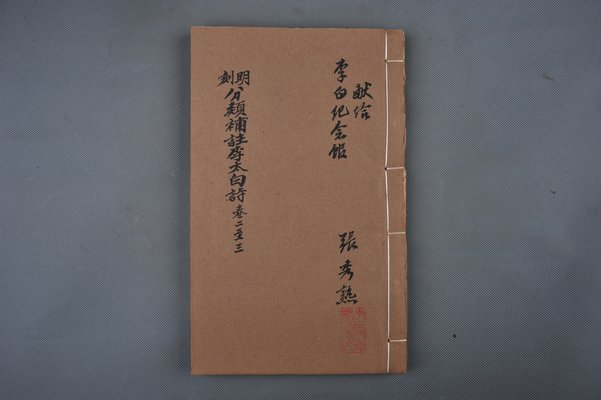 献给
李白纪念馆
張秀熟
明刻
分類補註李太白詩 卷二至三